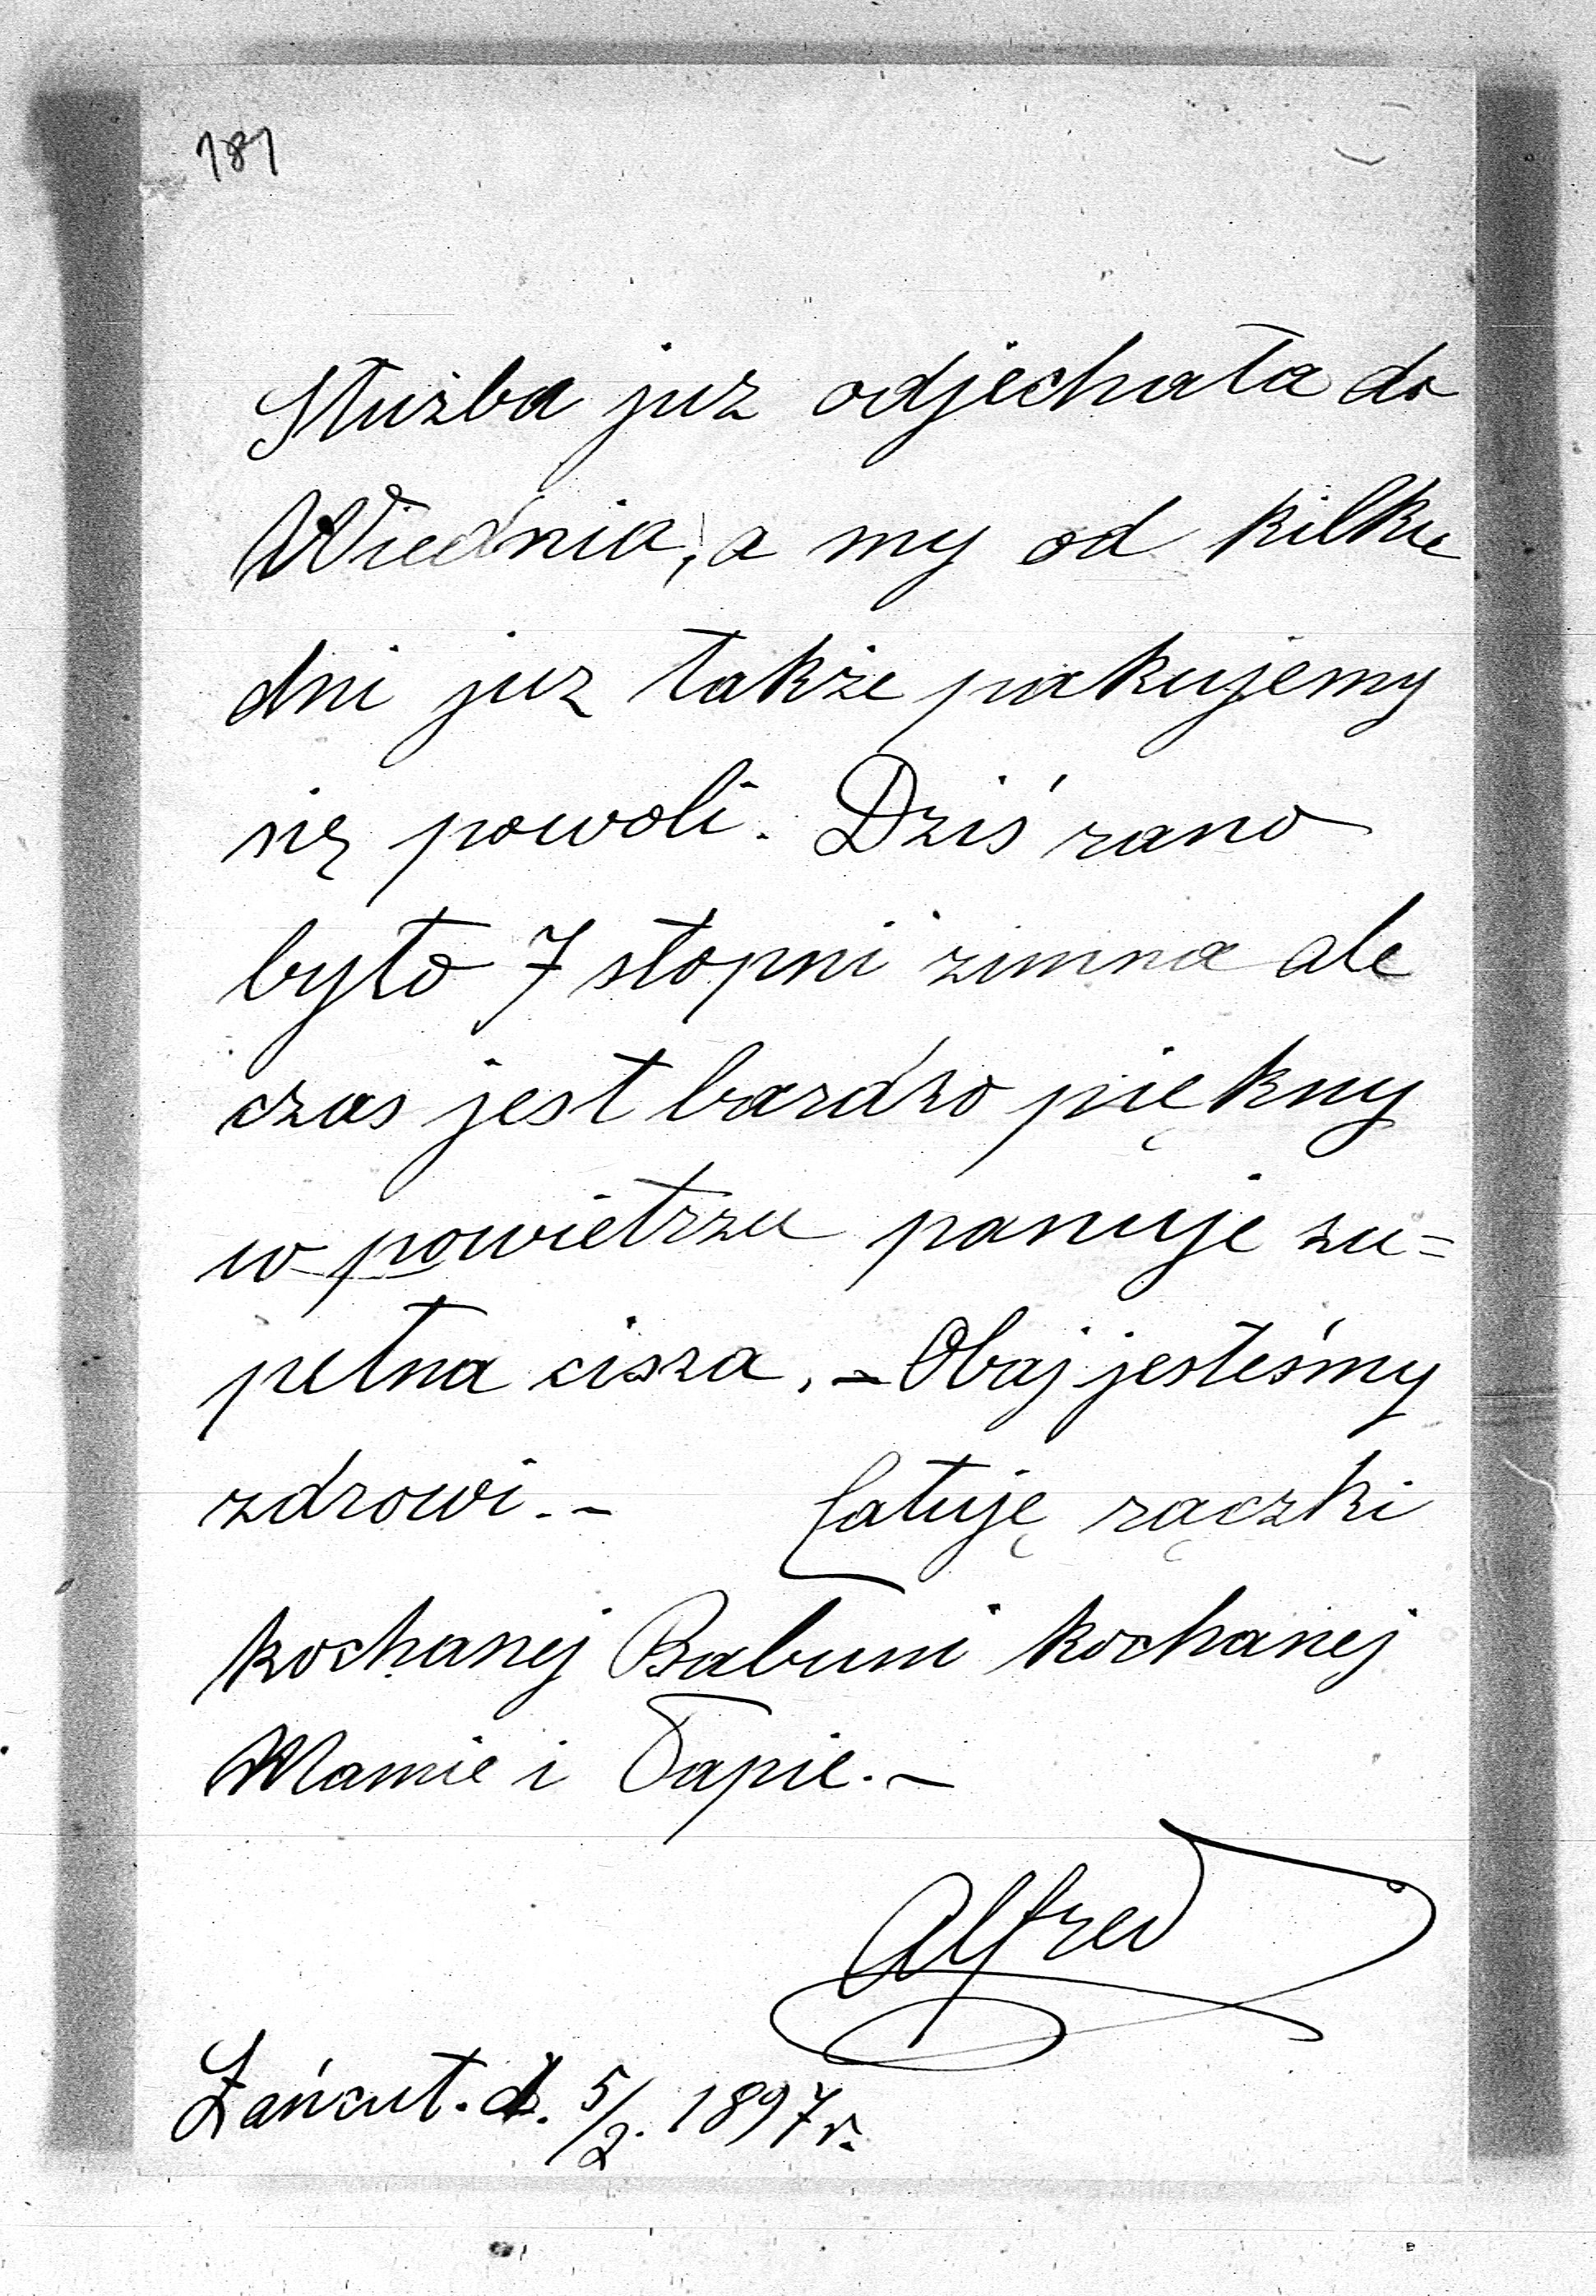 181
Służba już odjechała do
Wiednia, a my od kilku
dni już także pakujemy
się powoli. Dziś rano
było 7 stopni zimna ale
czas jest bardzo piękny
w powietrzu panuje zu=
pełna cisza. – Obaj jesteśmy
zdrowi. – Całuję rączki
kochanej Babuni kochanej
Mamie i Papie. –
Alfred
Łańcut. d. 5/2. 1897 r.